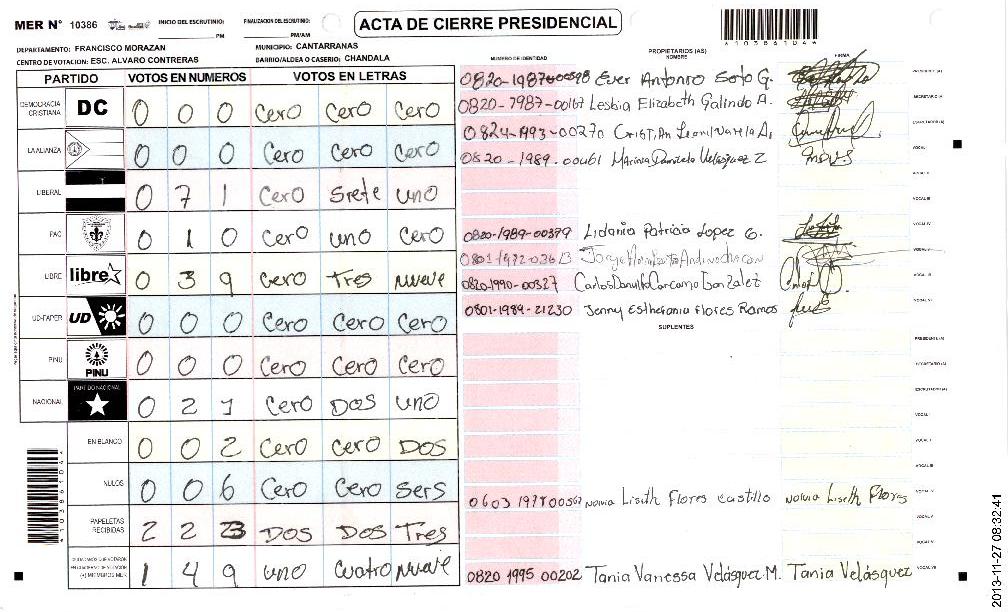 MER N° 10386 INICIO DEL ESCRUTINIO: PM FINALIZACION DEL ESCRUTINIO: PM/AM
ACTA DE CIERRE PRESIDENCIAL
*10386104*
DEPARTAMENTO: FRANCISCO MORAZAN MUNICIPIO: CANTARRANAS
CENTRO DE VOTACION: ESC. ALVARO CONTRERAS BARRIO/ALDEA O CASERIO: CHANDALA
PARTIDO VOTOS EN NUMEROS VOTOS EN LETRAS
DEMOCRACIA CRISTIANA DC 0 0 0 Cero Cero Cero
LA ALIANZA 0 0 0 Cero Cero Cero
LIBERAL 0 7 1 Cero Siete uno
PAC 0 1 0 Cero uno Cero
LIBRE libre 0 3 9 Cero Tres nueve
UD-FAPER UD 0 0 0 Cero Cero Cero
PINU PINU 0 0 0 Cero Cero Cero
NACIONAL PARTIDO NACIONAL 0 2 1 Cero Dos uno
EN BLANCO 0 0 2 Cero Cero Dos
NULOS 0 0 6 Cero Cero Seis
PAPELETAS RECIBIDAS 2 2 3 Dos Dos Tres
CIUDADANOS QUE VOTARON EN CUADERNO DE VOTACION (+) MIEMBROS MER 1 4 9 uno Cuatro nueve
*10386104*
PROPIETARIOS (AS)
NUMERO DE IDENTIDAD NOMBRE FIRMA
Ever Antonio Soto G. PRESIDENTE (A)
0820-1987-00167 Lesbia Elizabeth Galindo A. SECRETARIO (A)
ESCRUTADOR (A)
0820-1989-00461 VOCAL I
VOCAL II
VOCAL III
0820-1989-00379 Lidania Patricia Lopez G. VOCAL IV
VOCAL V
0820-1990-00327 Carlos Danilo Carcamo Gonzalez
0801-1984-21230 Jenny Esthefania Flores Ramos
SUPLENTES
PRESIDENTE (A)
SECRETARIO (A)
ESCRUTADOR (A)
VOCAL I
VOCAL II
VOCAL III
Liseth Flores Castillo Liseth Flores VOCAL IV
VOCAL V
VOCAL VI
0820 1995 00202 Tania Vanessa Velásquez M. Tania Velásquez
2013-11-27 08:32:41